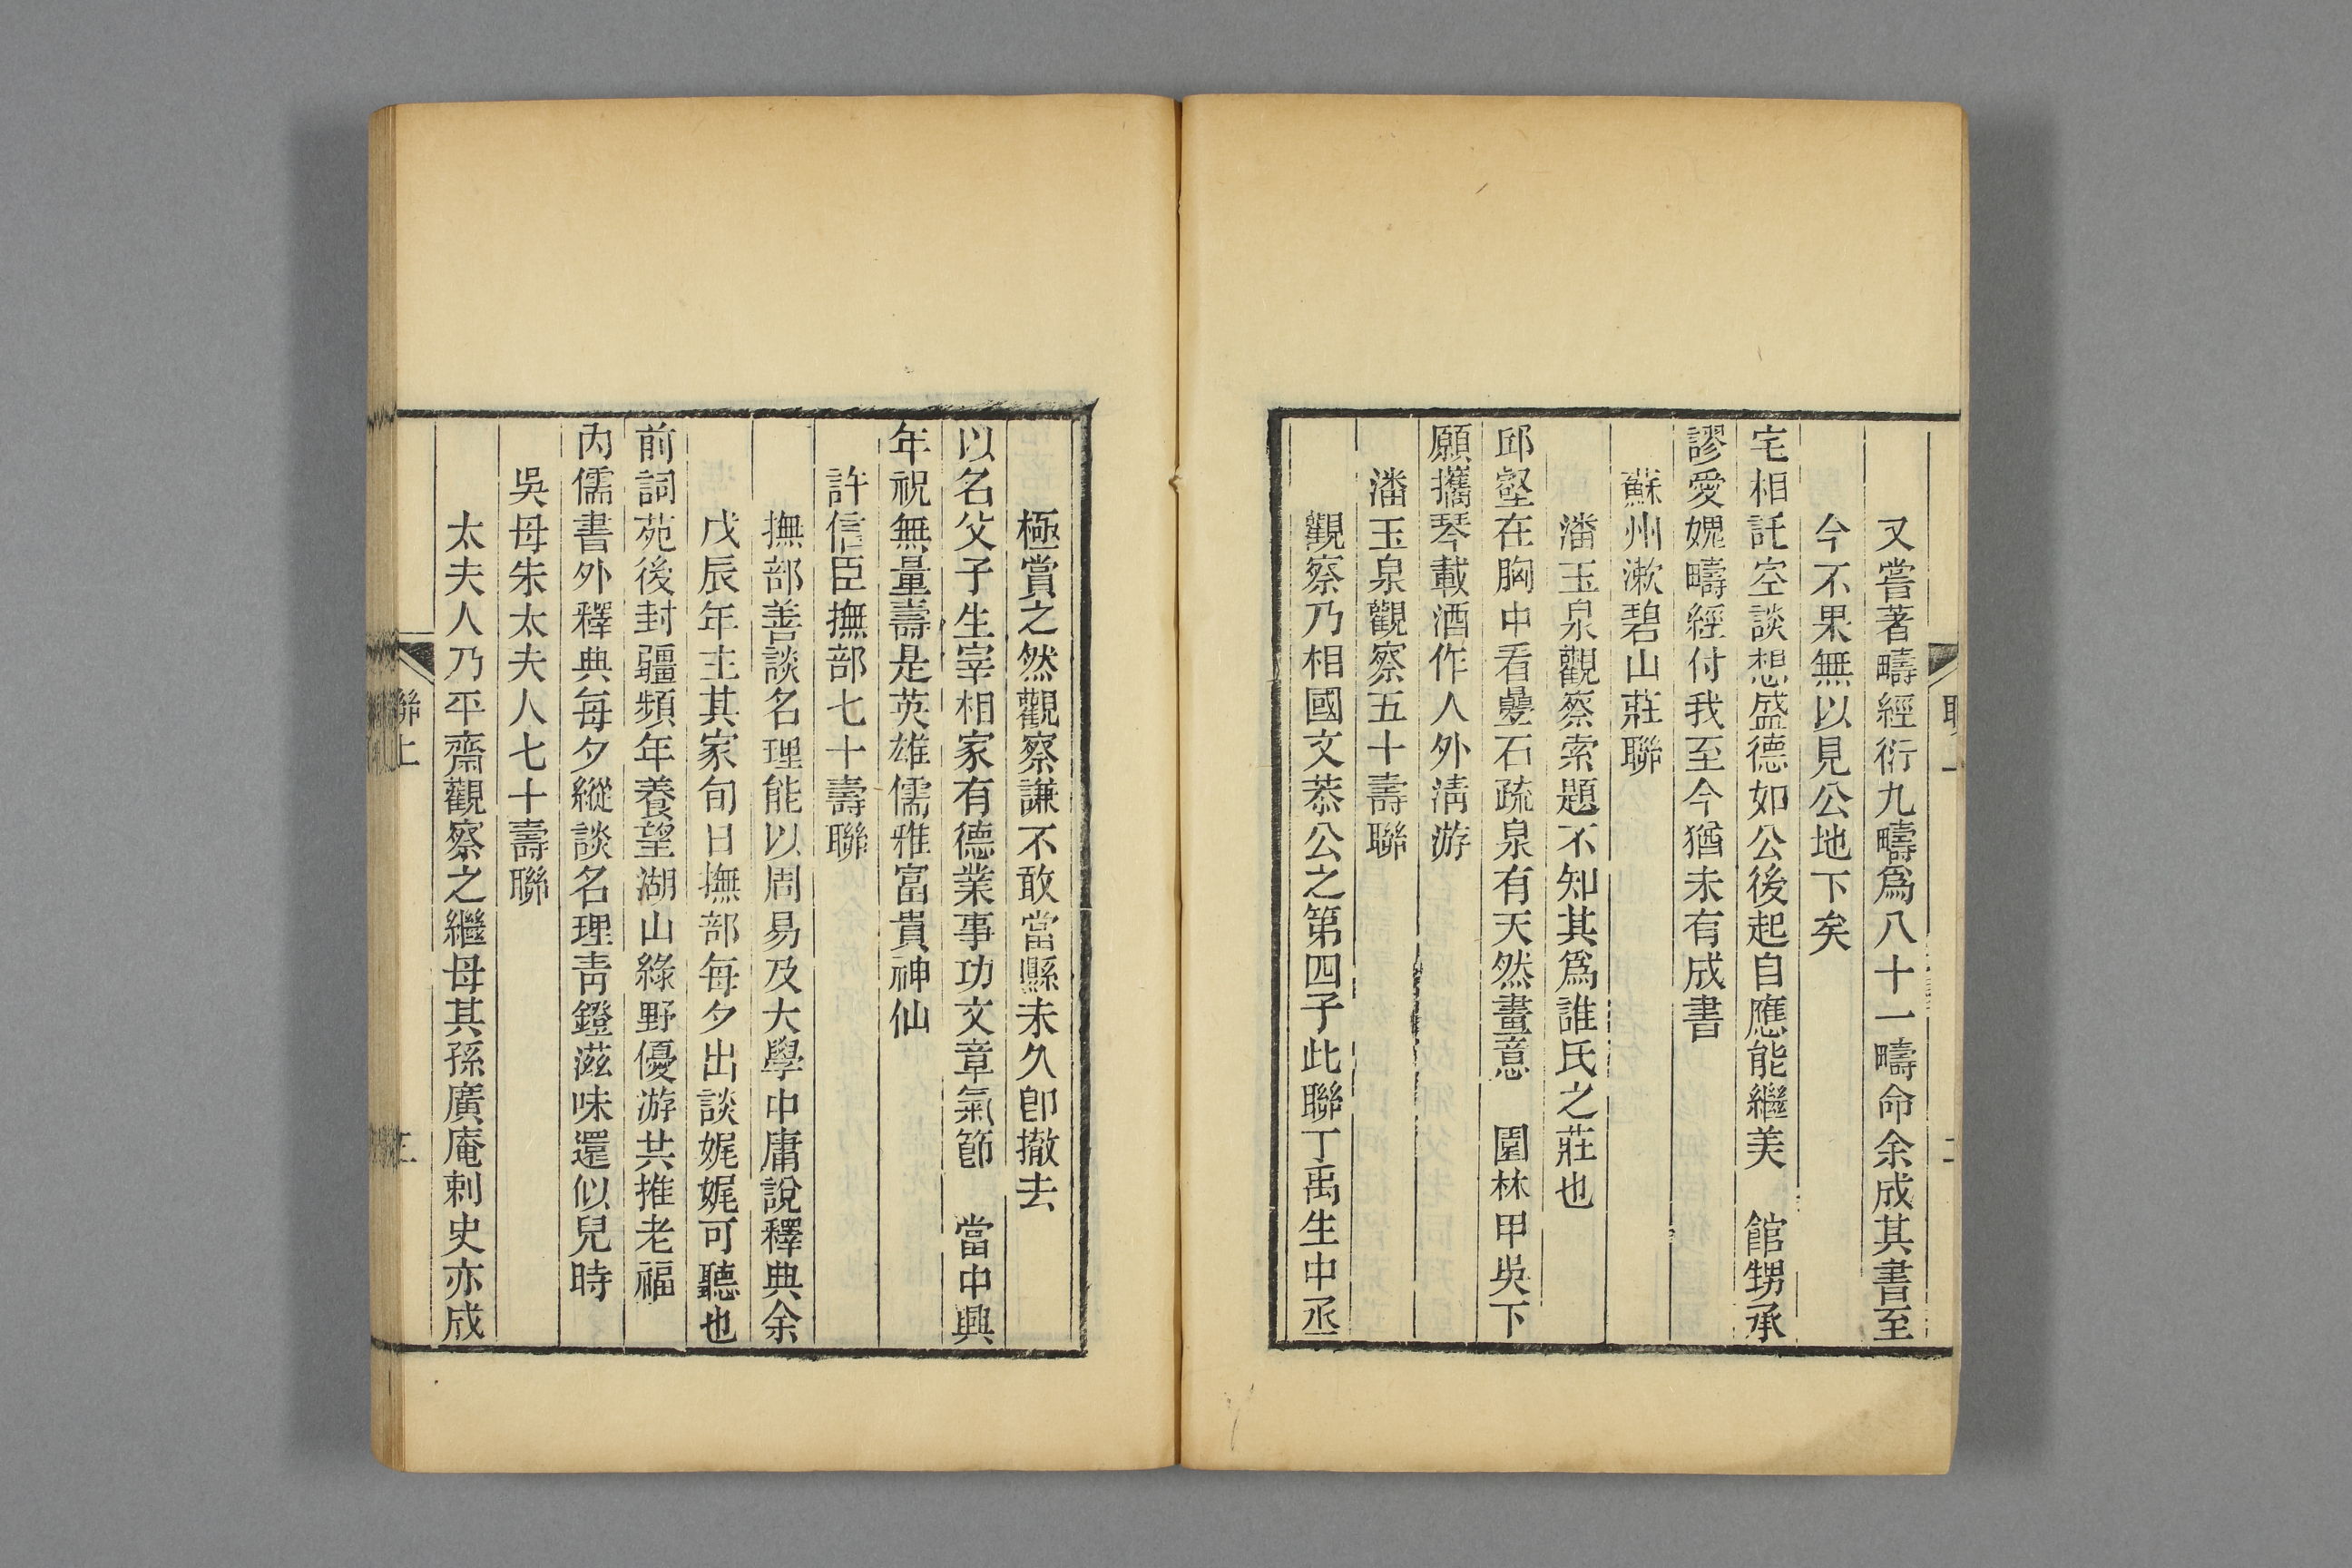 又嘗著疇經衍九疇爲八十一疇命余成其書至
今不果無以見公地下矣
宅相託空談想盛德如公後起自應能繼美　館甥承
謬愛媿疇經付我至今猶未有成書
蘇州漱碧山莊聯
潘玉泉觀察索題不知其爲誰氏之莊也
邱壑在胸中看壘石疏泉有天然畫意　園林甲吳下
願攜琴載酒作人外淸游
潘玉泉觀察五十壽聯
觀察乃相國文恭公之第四子此聯丁禹生中丞
極賞之然觀察謙不敢當縣未久卽撤去
以名父子生宰相家有德業事功文章氣節　當中興
年祝無量壽是英雄儒雅富貴神仙
許信臣撫部七十壽聯
撫部善談名理能以周易及大學中庸說釋典余
戊辰年主其家旬日撫部每夕出談娓娓可聽也
前詞苑後封疆頻年養望湖山綠野優游共推老福
內儒書外釋典每夕縱談名理靑鐙滋味還似兒時
吳母朱太夫人七十壽聯
太夫人乃平齋觀察之繼母其孫廣庵刺史亦成
聯上
三